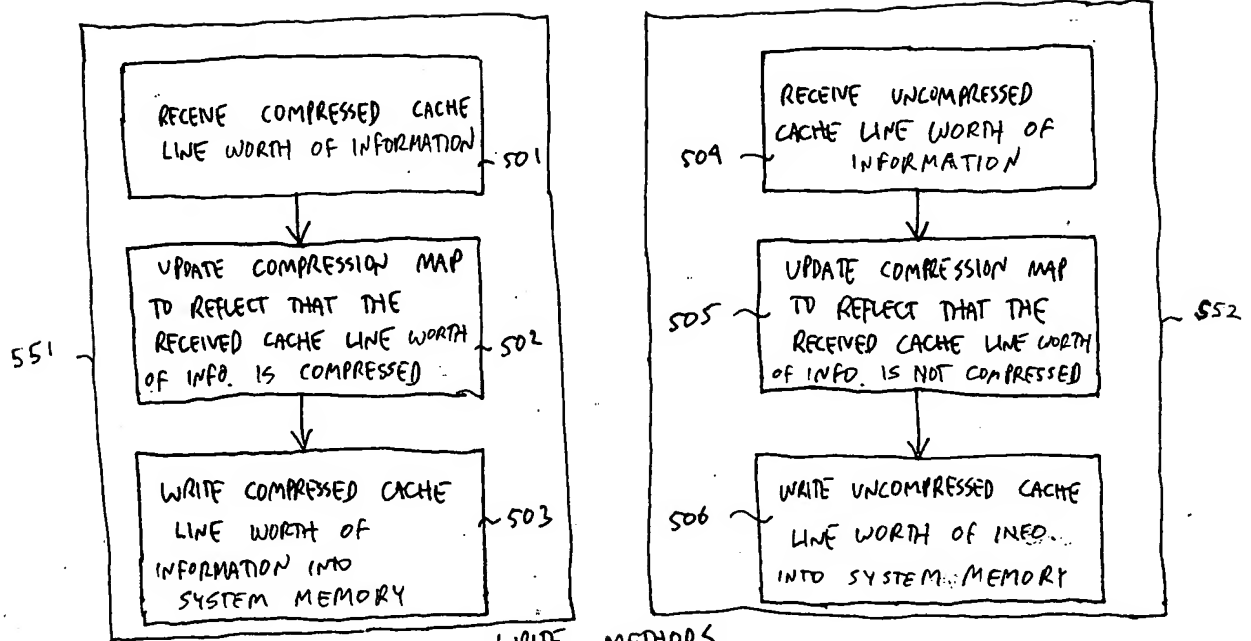 RECEIVE COMPRESSED CACHE
LINE WORTH OF INFORMATION
501
UPDATE COMPRESSION MAP
TO REFLECT THAT THE
RECEIVED CACHE LINE WORTH
OF INFO. IS COMPRESSED
502
551
WRITE COMPRESSED CACHE
LINE WORTH OF
INFORMATION INTO
SYSTEM MEMORY
503
RECEIVE UNCOMPRESSED
CACHE LINE WORTH OF
INFORMATION
504
UPDATE COMPRESSION MAP
TO REFLECT THAT THE
RECEIVED CACHE LINE WORTH
OF INFO. IS NOT COMPRESSED
505
552
WRITE UNCOMPRESSED CACHE
LINE WORTH OF INFO.
INTO SYSTEM MEMORY
506
WRITE METHODS